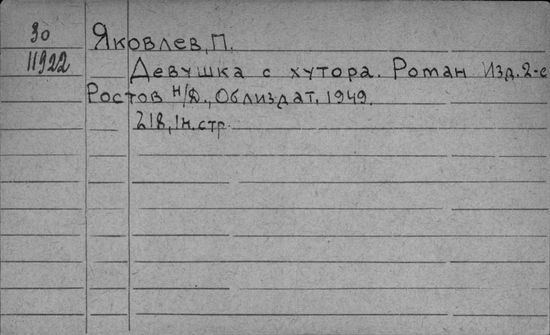 30
11922
Яковлев, П.
Девушка с хутора. Роман Изд. 2-е
Ростов н/Д., Облиздат, 1949.
218, 1 н. стр.